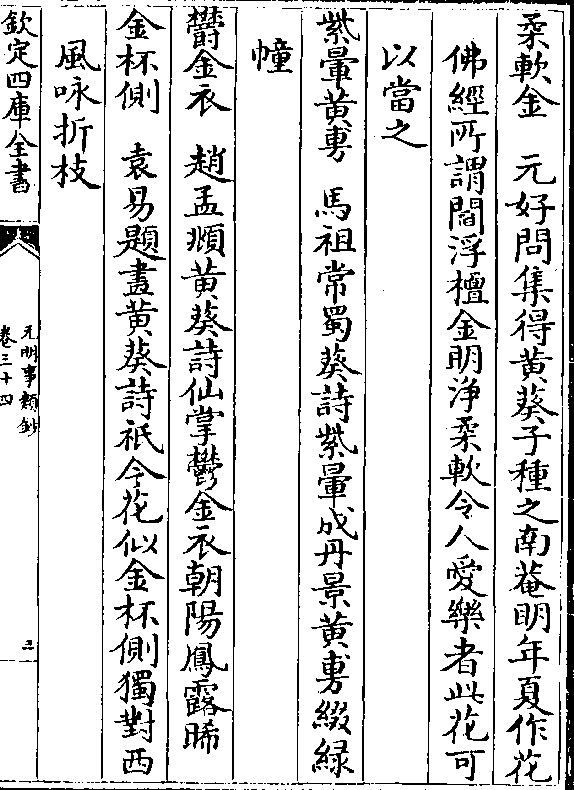 柔軟金　元好問集得黄葵子種之南菴明年夏作花
佛經所謂閻浮檀金明浄柔軟令人愛樂者此花可
以當之
紫暈黄旉　馬祖常蜀葵詩紫暈成丹景黄旉綴緑
幢
鬱金衣　趙孟頫黄葵詩仙掌鬱金衣朝陽鳳露晞
金杯側　袁易題畫黄葵詩祇今花似金杯側獨對西
風咏折枝
欽定四庫全書
元明事類鈔
卷三十四